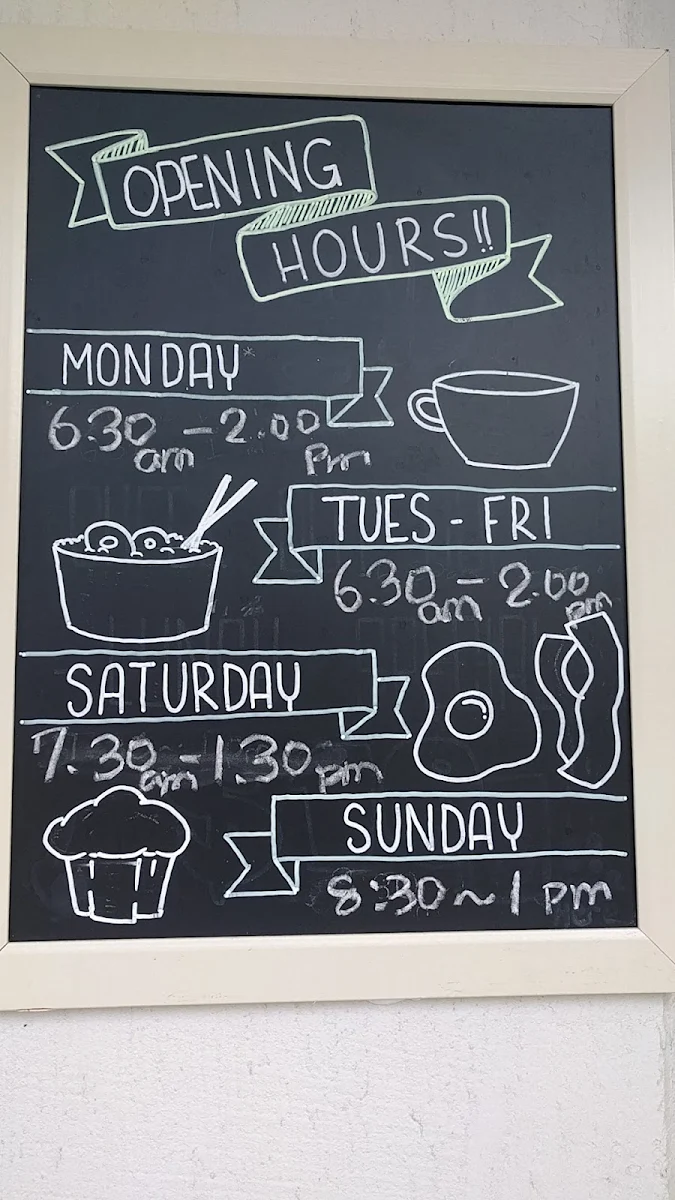 OPENING
HOURS!!
MONDAY*
6.30 am - 2.00 pm
TUES - FRI
6.30 am - 2.00 pm
SATURDAY
7.30 am - 1.30 pm
SUNDAY
8:30 ~ 1 pm